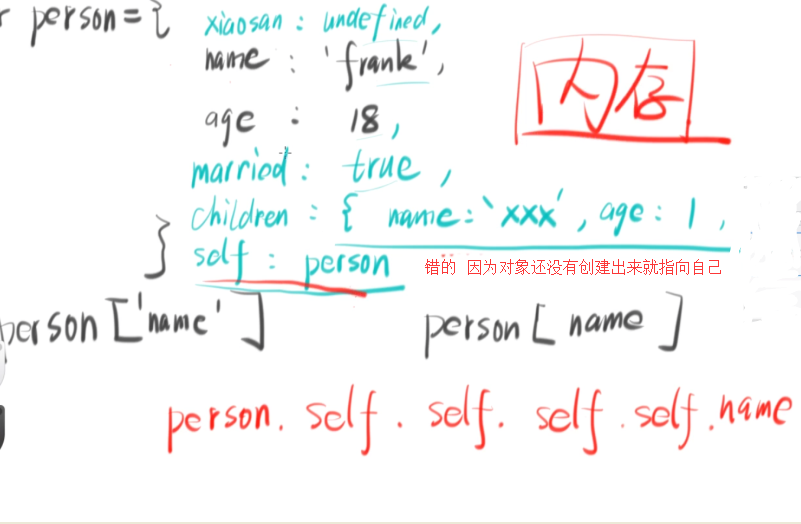 r person={ xiaosan : undefined,
name : 'frank',
内存
age : 18,
married : true ,
children : { name : 'xxx', age : 1 ,
} self : person 错的 因为对象还没有创建出来就指向自己
person['name'] person[name]
person. self. self. self. self. name